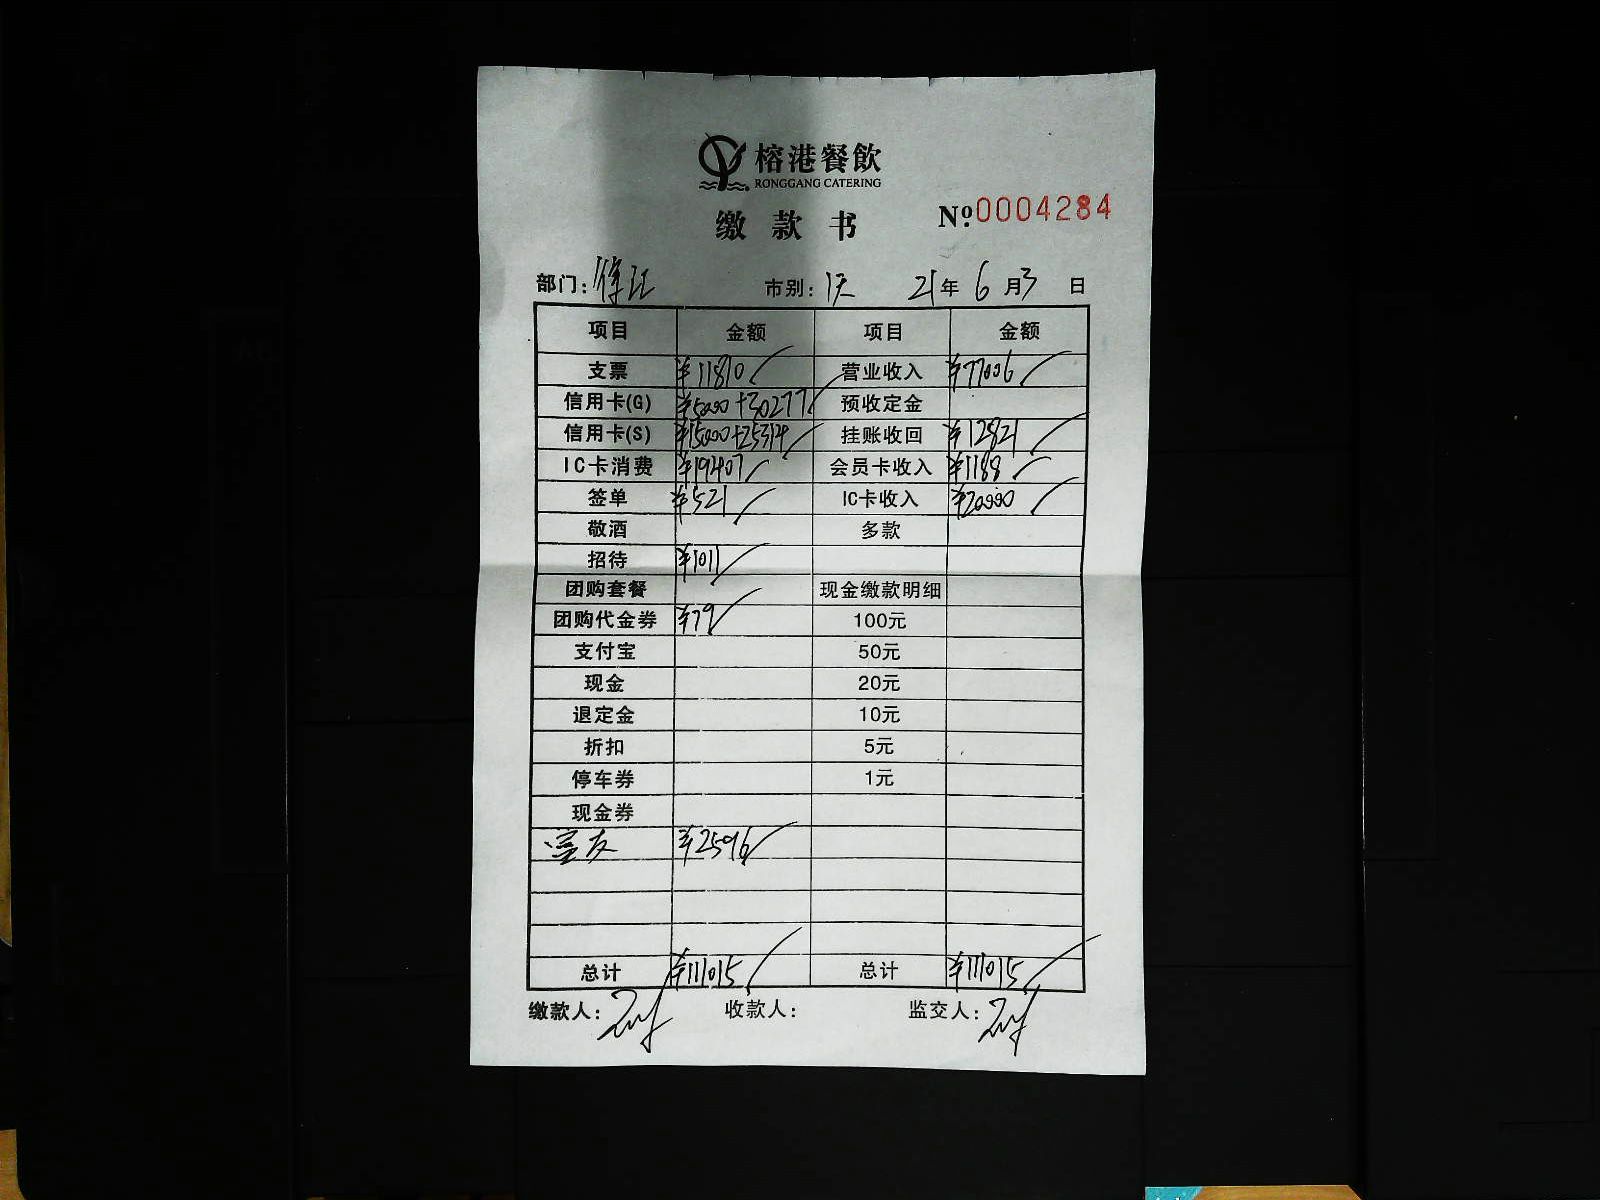 榕港餐飲
RONGGANG CATERING
缴款书
Nº.0004284
部门: 徐汇 市别: 21年6月3日
项目 金额 项目 金额
支票 ¥11810 营业收入 ¥77006
信用卡(G) ¥5000+30277 预收定金
信用卡(S) ¥15000+25314 挂账收回 ¥12821
IC卡消费 ¥19407 会员卡收入 ¥1188
签单 ¥521 IC卡收入 ¥20000
敬酒 多款
招待 ¥1011
团购套餐 现金缴款明细
团购代金券 ¥79 100元
支付宝 50元
现金 20元
退定金 10元
折扣 5元
停车券 1元
现金券
¥2596
总计 ¥111015 总计 ¥111015
缴款人: 收款人: 监交人: